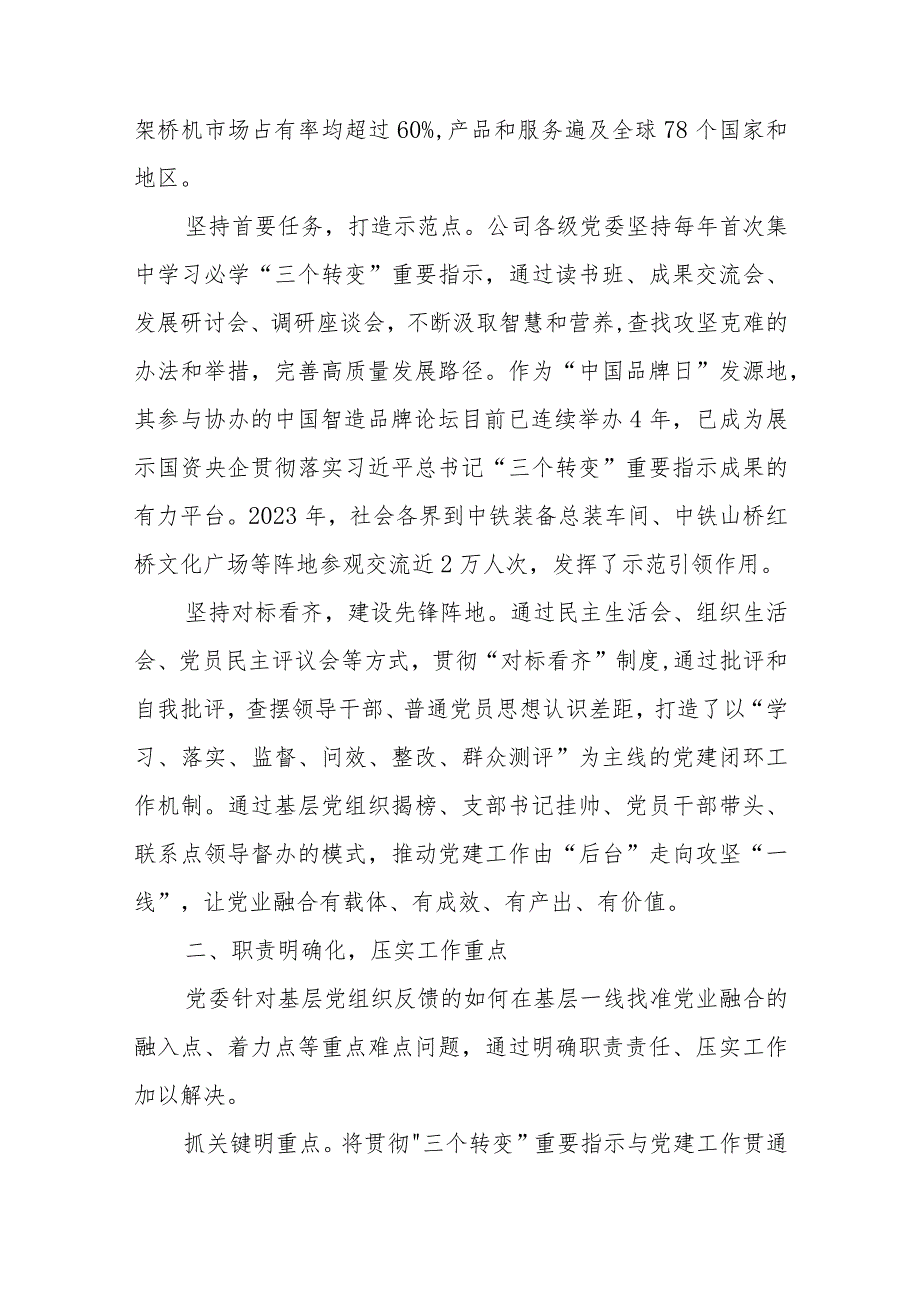 架桥机市场占有率均超过 60%,产品和服务遍及全球 78 个国家和
地区。
坚持首要任务，打造示范点。公司各级党委坚持每年首次集
中学习必学“三个转变”重要指示，通过读书班、成果交流会、
发展研讨会、调研座谈会，不断汲取智慧和营养,查找攻坚克难的
办法和举措，完善高质量发展路径。作为“中国品牌日”发源地，
其参与协办的中国智造品牌论坛目前已连续举办 4 年，已成为展
示国资央企贯彻落实习近平总书记“三个转变”重要指示成果的
有力平台。2023 年，社会各界到中铁装备总装车间、中铁山桥红
桥文化广场等阵地参观交流近 2 万人次，发挥了示范引领作用。
坚持对标看齐，建设先锋阵地。通过民主生活会、组织生活
会、党员民主评议会等方式，贯彻“对标看齐”制度,通过批评和
自我批评，查摆领导干部、普通党员思想认识差距，打造了以“学
习、落实、监督、问效、整改、群众测评”为主线的党建闭环工
作机制。通过基层党组织揭榜、支部书记挂帅、党员干部带头、
联系点领导督办的模式，推动党建工作由“后台”走向攻坚“一
线”，让党业融合有载体、有成效、有产出、有价值。
二、职责明确化，压实工作重点
党委针对基层党组织反馈的如何在基层一线找准党业融合的
融入点、着力点等重点难点问题，通过明确职责责任、压实工作
加以解决。
抓关键明重点。将贯彻"三个转变”重要指示与党建工作贯通